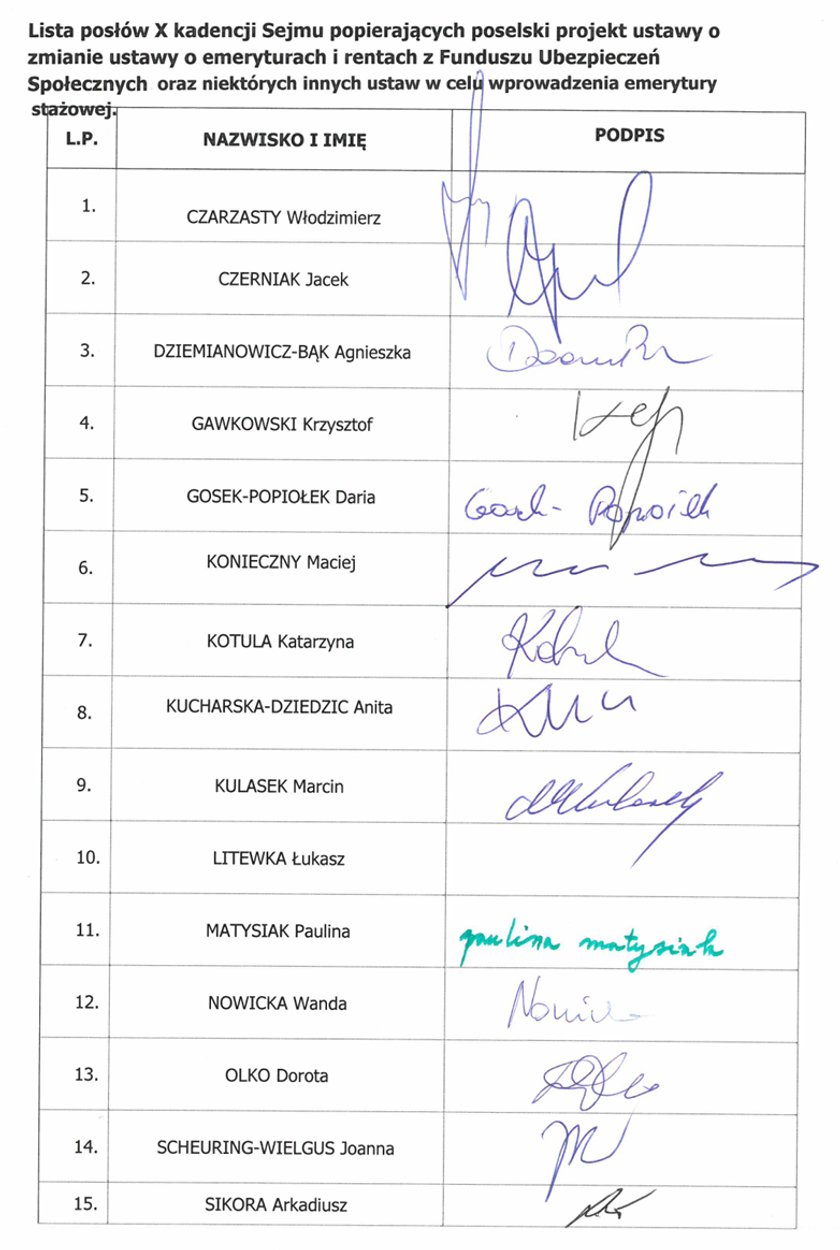 Lista posłów X kadencji Sejmu popierających poselski projekt ustawy o
zmianie ustawy o emeryturach i rentach z Funduszu Ubezpieczeń
Społecznych oraz niektórych innych ustaw w celu wprowadzenia emerytury
stażowej.
L.P. NAZWISKO I IMIĘ PODPIS
1. CZARZASTY Włodzimierz
2. CZERNIAK Jacek
3. DZIEMIANOWICZ-BĄK Agnieszka
4. GAWKOWSKI Krzysztof
5. GOSEK-POPIOŁEK Daria
6. KONIECZNY Maciej
7. KOTULA Katarzyna
8. KUCHARSKA-DZIEDZIC Anita
9. KULASEK Marcin
10. LITEWKA Łukasz
11. MATYSIAK Paulina paulina matysiak
12. NOWICKA Wanda
13. OLKO Dorota
14. SCHEURING-WIELGUS Joanna
15. SIKORA Arkadiusz